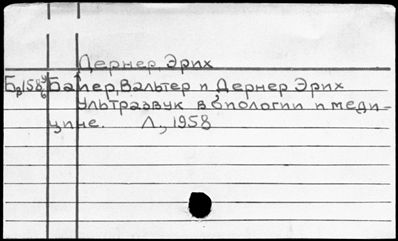 Дернер, Эрих
Байер, Вальтер и Дернер Эрих
Ультразвук в биологии и меди-
цине. Л., 1958